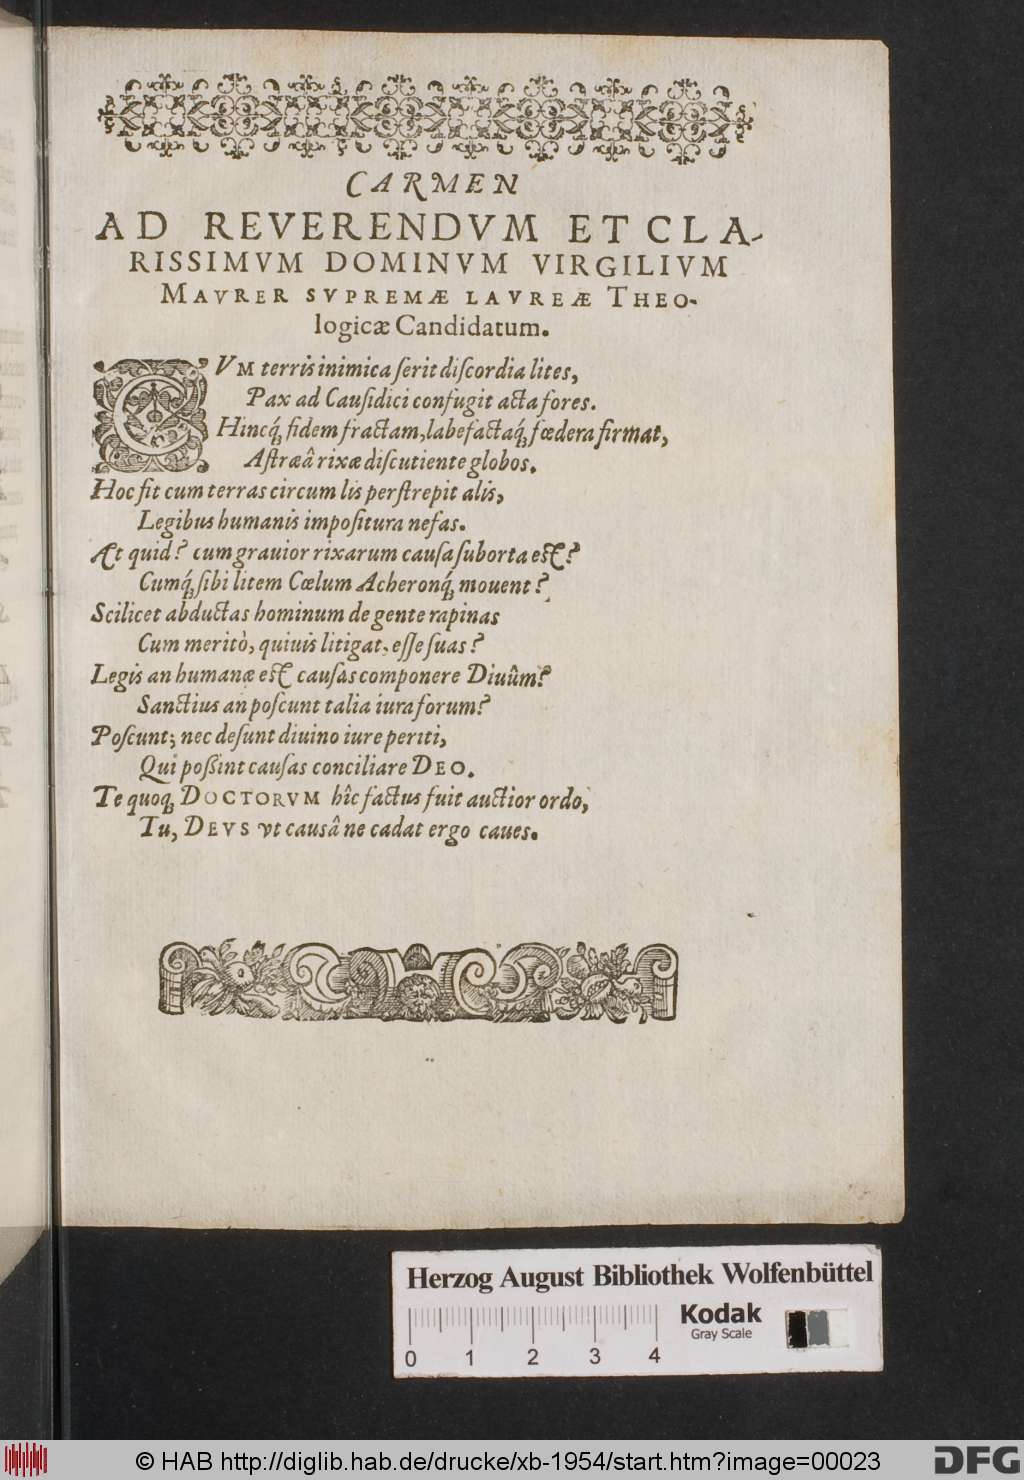 CARMEN
AD REVERENDVM ET CLA-
RISSIMVM DOMINVM VIRGILIVM
MAVRER SVPREMÆ LAVREÆ THEO-
logicæ Candidatum.
CVM terris inimica ſerit diſcordia lites,
Pax ad Cauſidici confugit acta fores.
Hincq́; fidem fractam, labefactaq́; fœdera firmat,
Aſtræâ rixæ diſcutiente globos.
Hoc fit cum terras circum lis perſtrepit alis,
Legibus humanis impoſitura nefas.
At quid? cum grauior rixarum cauſa ſuborta est?
Cumq́; ſibi litem Cœlum Acheronq́; mouent?
Scilicet abductas hominum de gente rapinas
Cum meritò, quiuis litigat, eſſe ſuas?
Legis an humanæ est cauſas componere Diuûm?
Sanctius an poſcunt talia iura forum?
Poſcunt; nec deſunt diuino iure periti,
Qui poßint cauſas conciliare DEO.
Te quoq; DOCTORVM hîc factus fuit auctior ordo,
Tu, DEVS vt causâ ne cadat ergo caues.
Herzog August Bibliothek Wolfenbüttel
Kodak
Gray Scale
0 1 2 3 4
© HAB http://diglib.hab.de/drucke/xb-1954/start.htm?image=00023
DFG